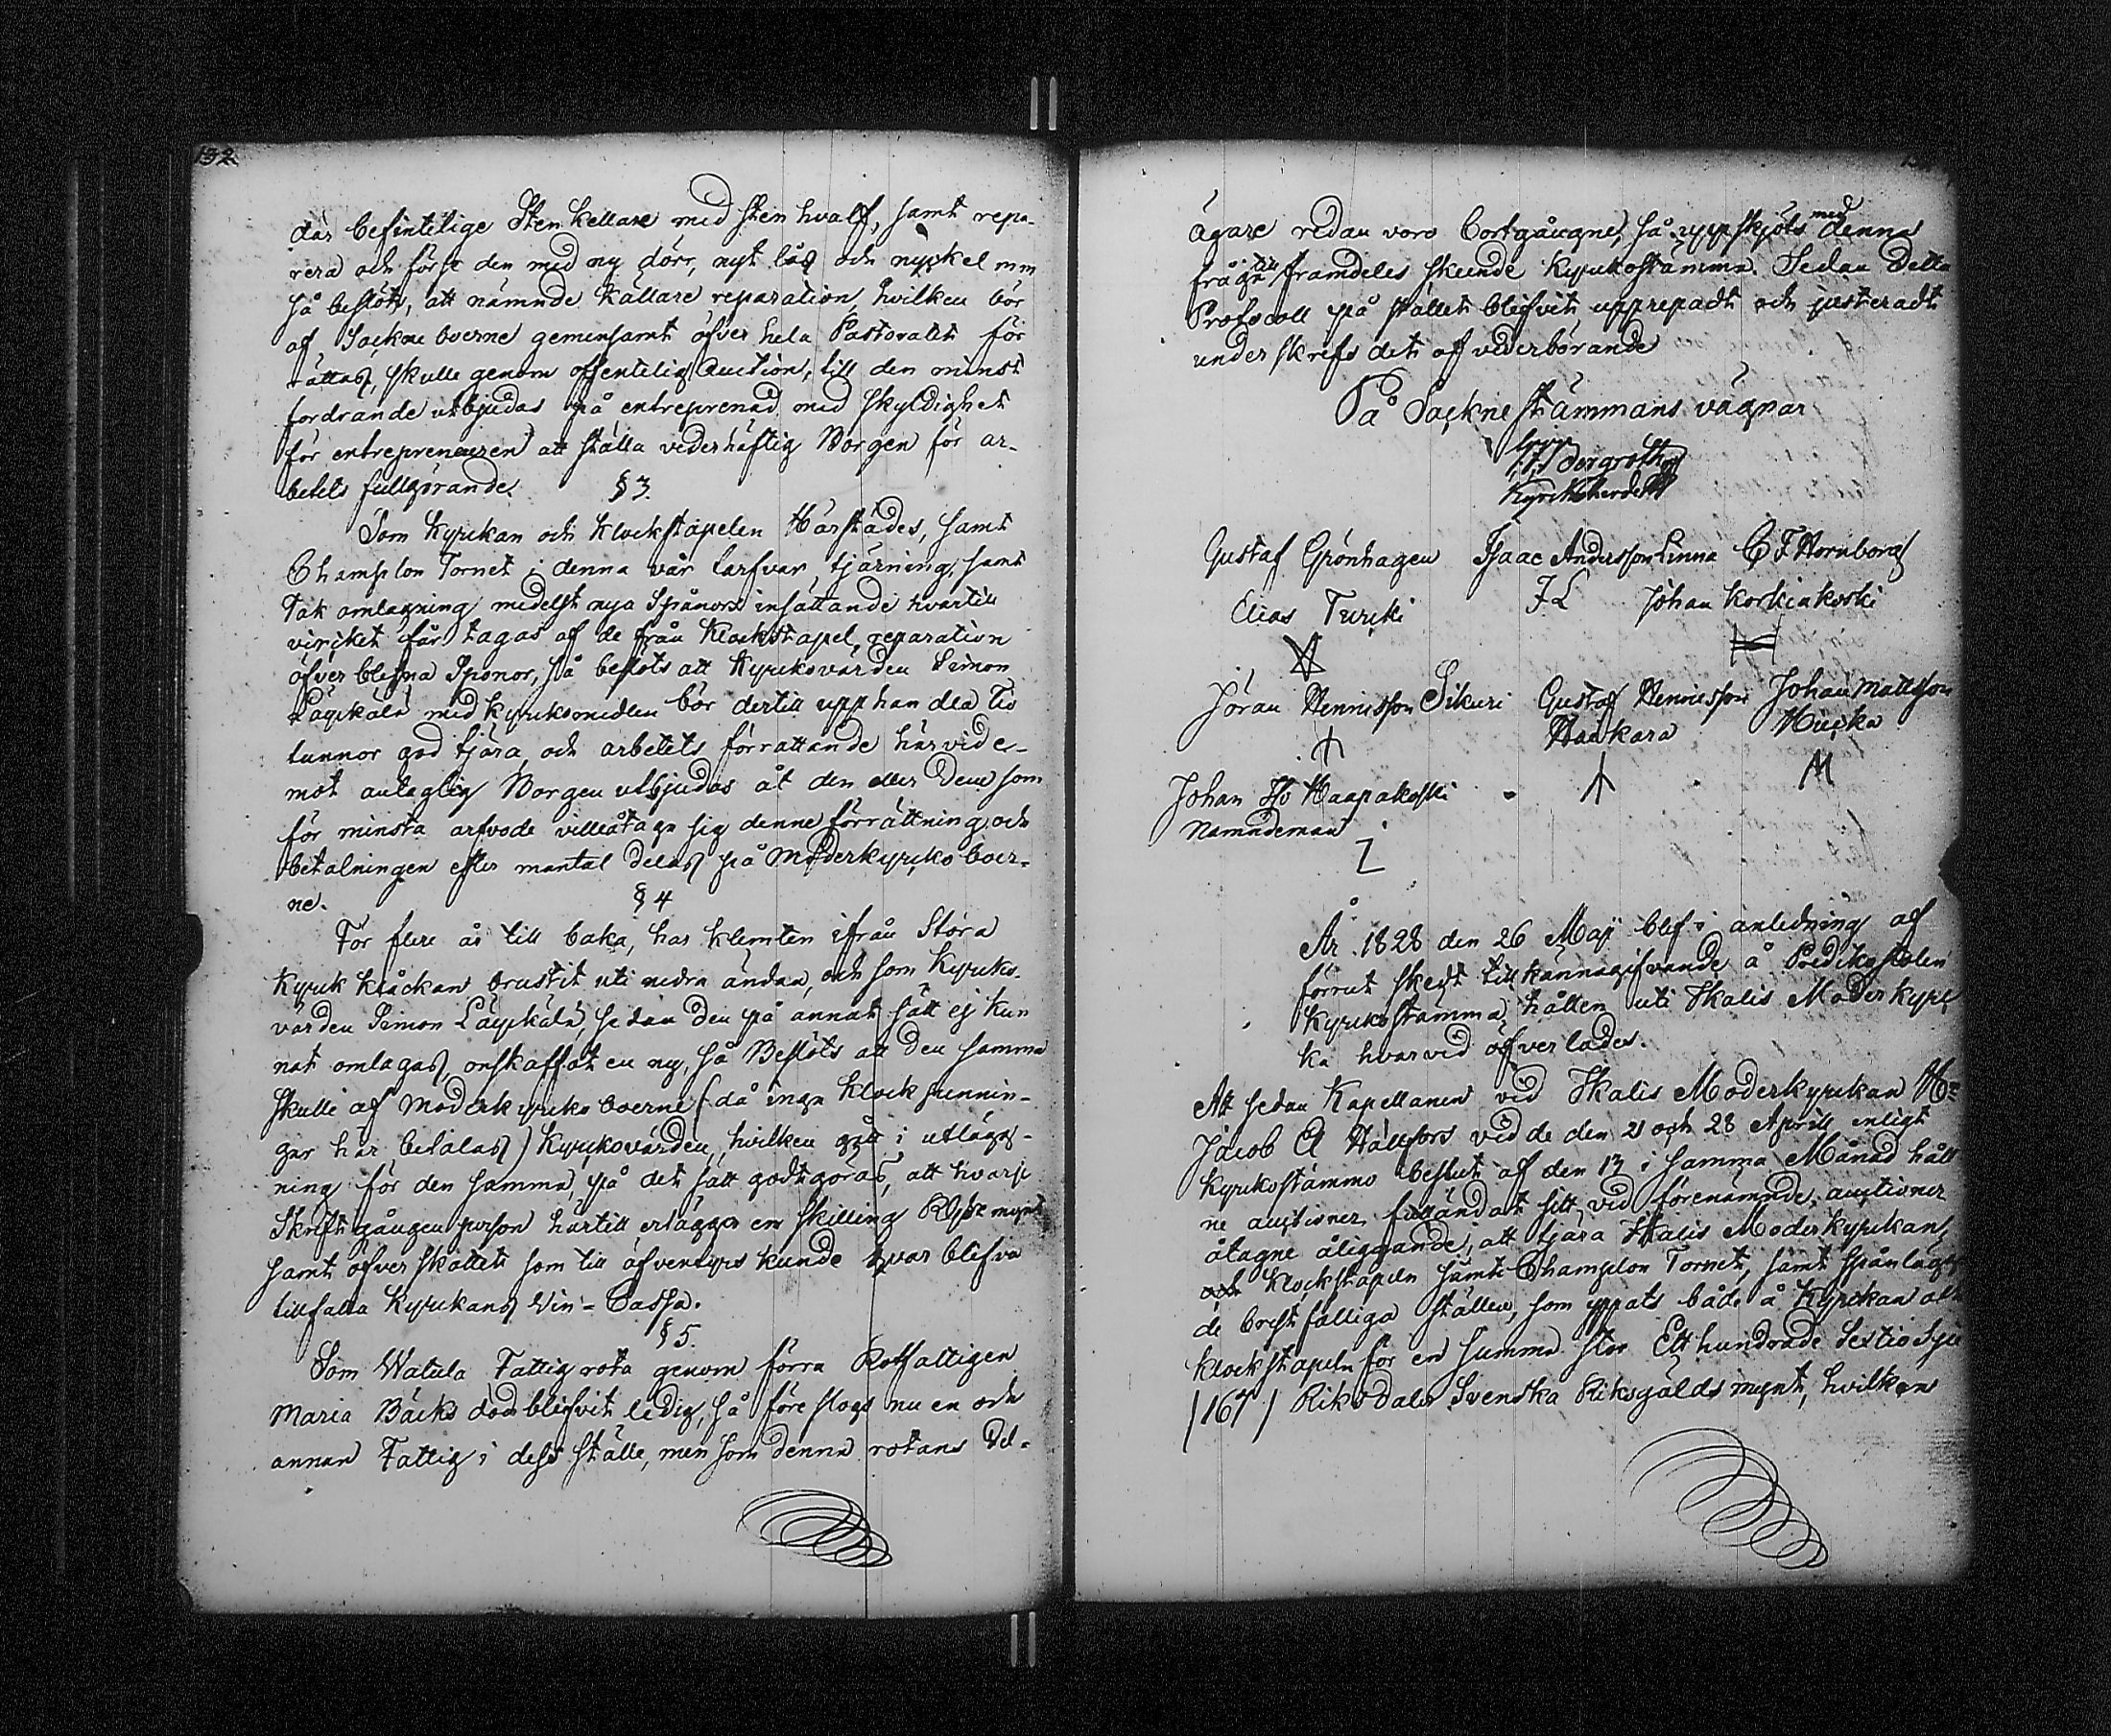 132
där befintelige Sten Kellare med sten hvalf, samt repa-
rera och förse den med ny dörr, nyt lås och nyckel mm
så beslöts, att nämnde Källare reparation, hvilken bör
af Sockne boerne gemensamt öfver hela Pastoratet för
rättas, skulle genom offentelig Auction, till den minst
fordrande utbjudas på entreprenad med skyldighet
för entrepreneuren att ställa vederhäftig Borgen för ar-
betets fullgörande.
§ 3.
Som Kyrckan och Klockstapelen Härstädes, samt
Champlon Tornet i denna vår tarfvar tjärning, samt
Tak omlagning medelst nya Spånors insättande hvartill
vircket får tagas af de från Klockstapel, reparation
öfver blefna Sponor, så beslöts att Kyrcksvärden Simon
Läyckälä med kyrcksmedlen bör dertill upphandla tio
tunnor god tjära, och arbetets förrättande härvid e-
mot antaglig Borgen utbjudas åt den eller Dem som
för minsta arfvode ville åtaga sig denne förrättning och
betalningen efter mantal delas på Moderkyrcko boer-
ne.
§ 4
För flere år till baka, har klemten ifrån Stora
Kyrck klåckan brustit uti nedra ändan, och som Kyrcks-
värden Simon Läyckälä, sedan den på annat sätt ej kun
nat omlagas, anskaffat en ny, så Beslöts att den samma
skulle af Moderkyrcko boerne (då inga Klock pennin-
gar här betalas) Kyrckovärden, hvilken gått i utlägg-
ning för den samma, på det sätt godtgöras, att hvarje
Skriftgången person härtill erlägger en skilling RGs mynt
samt öfverskottet som till äfventyrs kunde qvar blifva
tillfalla Kyrckans Vin-Cassa.
§ 5.
Som Watula Fattig rota genom förra Rothaltigen
Maria Bäcks död blifvit ledig, så föreslogs nu en och
annan Fattig i dess ställe, men som denna rotans Del-
ägare redan voro bortgångne, så uppskjöts med denna
fråga till framdeles skeende Kyrckostämma. Sedan Detta
Protocoll på stället blifvit upprepadt och justeradt
underskrefs det af vederbörande
På Sockne stämmans vägnar
Bergroth
Kyrckoherde
Gustaf Grönhagen Isaac Andersson Linna C F Hornborg
Elias Turcki IL Johan Korkiakoski
Jöran Hennisson Sikuri Gustaf Hennisson Johan Mattsson
Hankara
M
Johan Haapakoski
Nämndeman
År 1828 den 26 Maji blef i anledning af
förrut skedt tillkännagifvande å Predikostolen
Kyrckostämma hållen uti Ikalis Moder kyrc
ka hvarvid öfverlades.
Att sedan Kapellanen vid Ikalis Moderkyrckan Hr
Jacob A Hällfors vid de den 21 och 28 Aprill enligt
Kyrckostämmo beslut af den 13 i samma Månad håll
ne auctioner fulländat sitt vid förenämnde auctioner
åtagne åliggande, att tjära Ikalis Moderkyrckan,
och Klockstapeln samt Champlon Tornet, samt Spånlägga
de bristfälliga ställen, som yppats både å Kyrckan och
Klockstapeln för en Summa stor Ett hundrade Sextio Sju
(167) Riksdaler Svenska Riksgälds mynt, hvilken